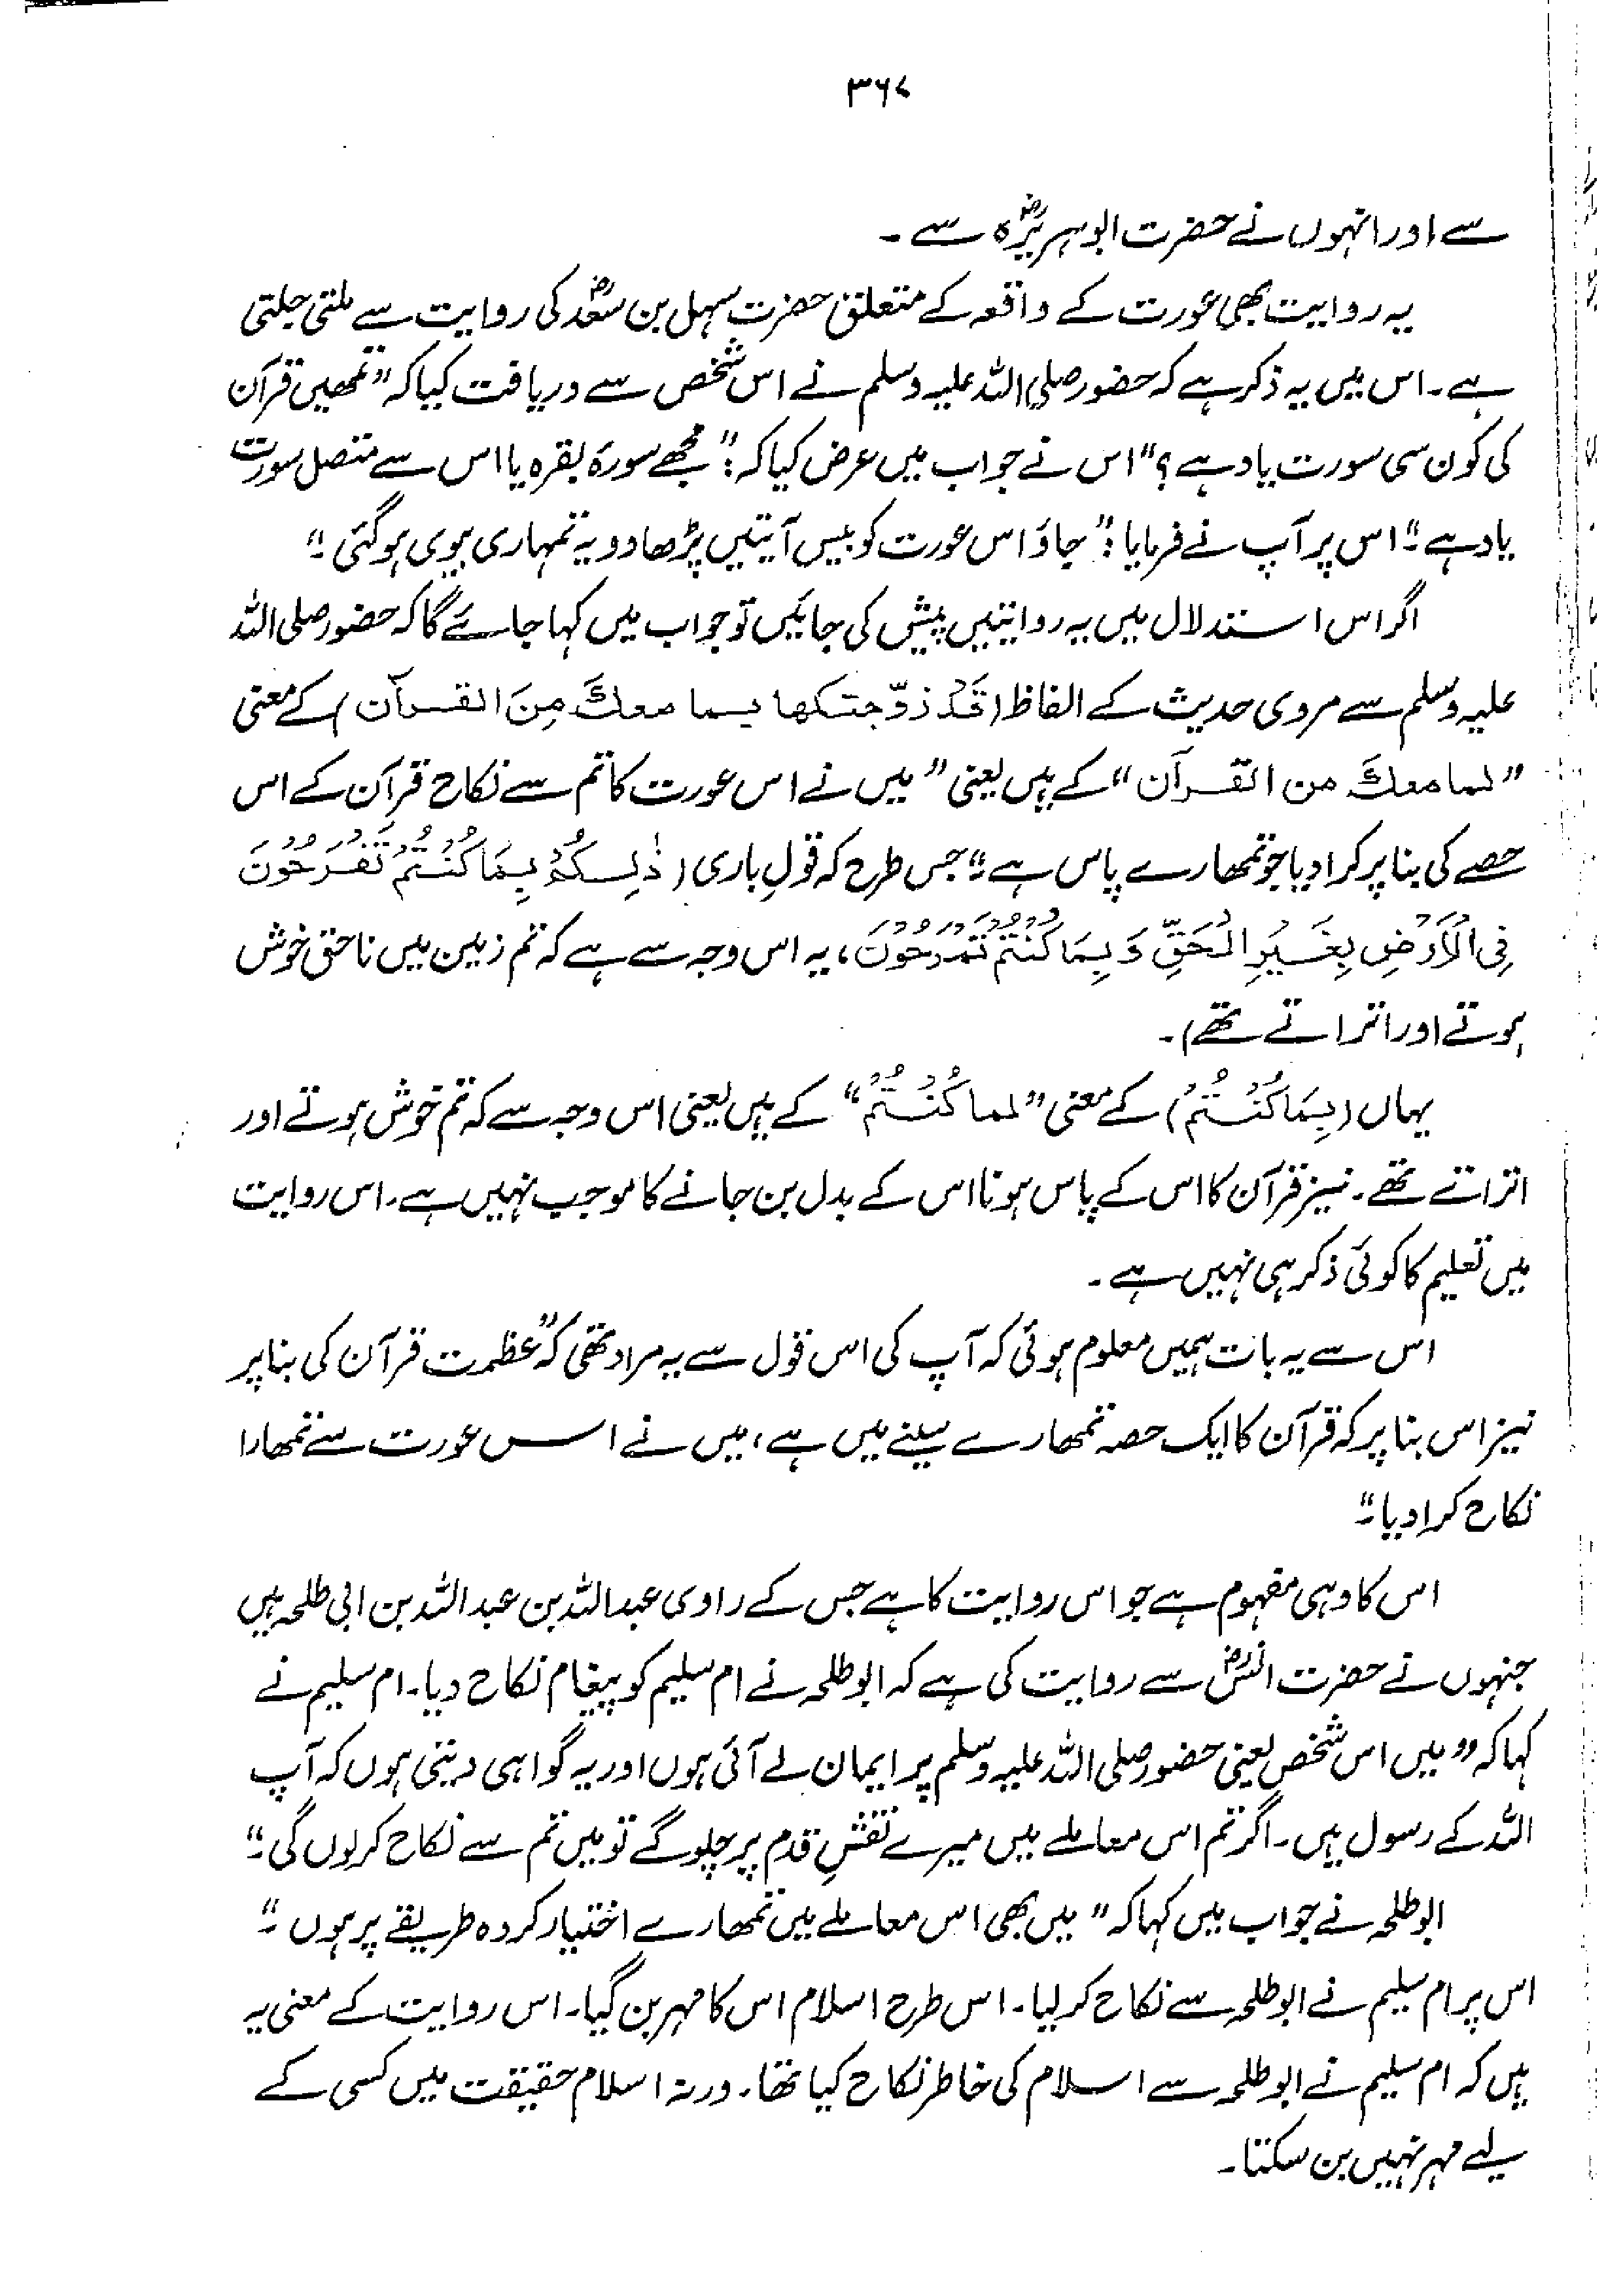 ۳۶۷
سے اور انہوں نے حضرت ابوہریرہؓ سے ۔
یہ روایت بھی عورت کے واقعہ کے متعلق حضرت سہل بن سعدؓ کی روایت سے ملتی جلتی
ہے ۔ اس میں یہ ذکر ہے کہ حضور صلی اللہ علیہ وسلم نے اس شخص سے دریافت کیا کہ ”تمھیں قرآن
کی کون سی سورت یاد ہے؟“ اس نے جواب میں عرض کیا کہ: ”مجھے سورۂ بقرہ یا اس سے متصل سورت
یاد ہے“۔ اس پر آپ نے فرمایا: ”جاؤ اس عورت کو بیس آیتیں پڑھا دو یہ تمہاری بیوی ہو گئی ۔“
اگر اس استدلال میں یہ روایتیں پیش کی جائیں تو جواب میں کہا جائے گا کہ حضور صلی اللہ
علیہ وسلم سے مروی حدیث کے الفاظ (قَدْ زوّجتکھا بما معكَ مِنَ القرآن) کے معنی
”لما معكَ من القرآن“ کے ہیں یعنی ”میں نے اس عورت کا تم سے نکاح قرآن کے اس
حصے کی بنا پر کرا دیا جو تمھارے پاس ہے“۔ جس طرح کہ قولِ باری (ذٰلِكُمْ بِمَا كُنْتُمْ تَفْرَحُوْنَ
فِی الْاَرْضِ بِغَيْرِ الْحَقِّ وَ بِمَا كُنْتُمْ تَمْرَحُوْنَ، یہ اس وجہ سے ہے کہ تم زمین میں ناحق خوش
ہوتے اور اتراتے تھے) ۔
یہاں (بِمَا كُنْتُمْ) کے معنی ”لما كُنْتُمْ“ کے ہیں یعنی اس وجہ سے کہ تم خوش ہوتے اور
اتراتے تھے ۔ نیز قرآن کا اس کے پاس ہونا اس کے بدل بن جانے کا موجب نہیں ہے ۔ اس روایت
میں تعلیم کا کوئی ذکر ہی نہیں ہے ۔
اس سے یہ بات ہمیں معلوم ہوئی کہ آپ کی اس قول سے یہ مراد تھی کہ ”عظمت قرآن کی بنا پر
نیز اس بنا پر کہ قرآن کا ایک حصہ تمھارے سینے میں ہے، میں نے اس عورت سے تمھارا
نکاح کرا دیا“۔
اس کا وہی مفہوم ہے جو اس روایت کا ہے جس کے راوی عبداللہ بن عبداللہ بن ابی طلحہ ہیں
جنہوں نے حضرت انسؓ سے روایت کی ہے کہ ابوطلحہ نے ام سلیم کو پیغام نکاح دیا ۔ ام سلیم نے
کہا کہ ”میں اس شخص یعنی حضور صلی اللہ علیہ وسلم پر ایمان لے آئی ہوں اور یہ گواہی دیتی ہوں کہ آپ
اللہ کے رسول ہیں ۔ اگر تم اس معاملے میں میرے نقشِ قدم پر چلو گے تو میں تم سے نکاح کر لوں گی“۔
ابوطلحہ نے جواب میں کہا کہ ”میں بھی اس معاملے میں تمھارے اختیار کردہ طریقے پر ہوں ۔“
اس پر ام سلیم نے ابوطلحہ سے نکاح کر لیا ۔ اس طرح اسلام اس کا مہر بن گیا ۔ اس روایت کے معنی یہ
ہیں کہ ام سلیم نے ابوطلحہ سے اسلام کی خاطر نکاح کیا تھا ۔ ورنہ اسلام حقیقت میں کسی کے
لیے مہر نہیں بن سکتا ۔